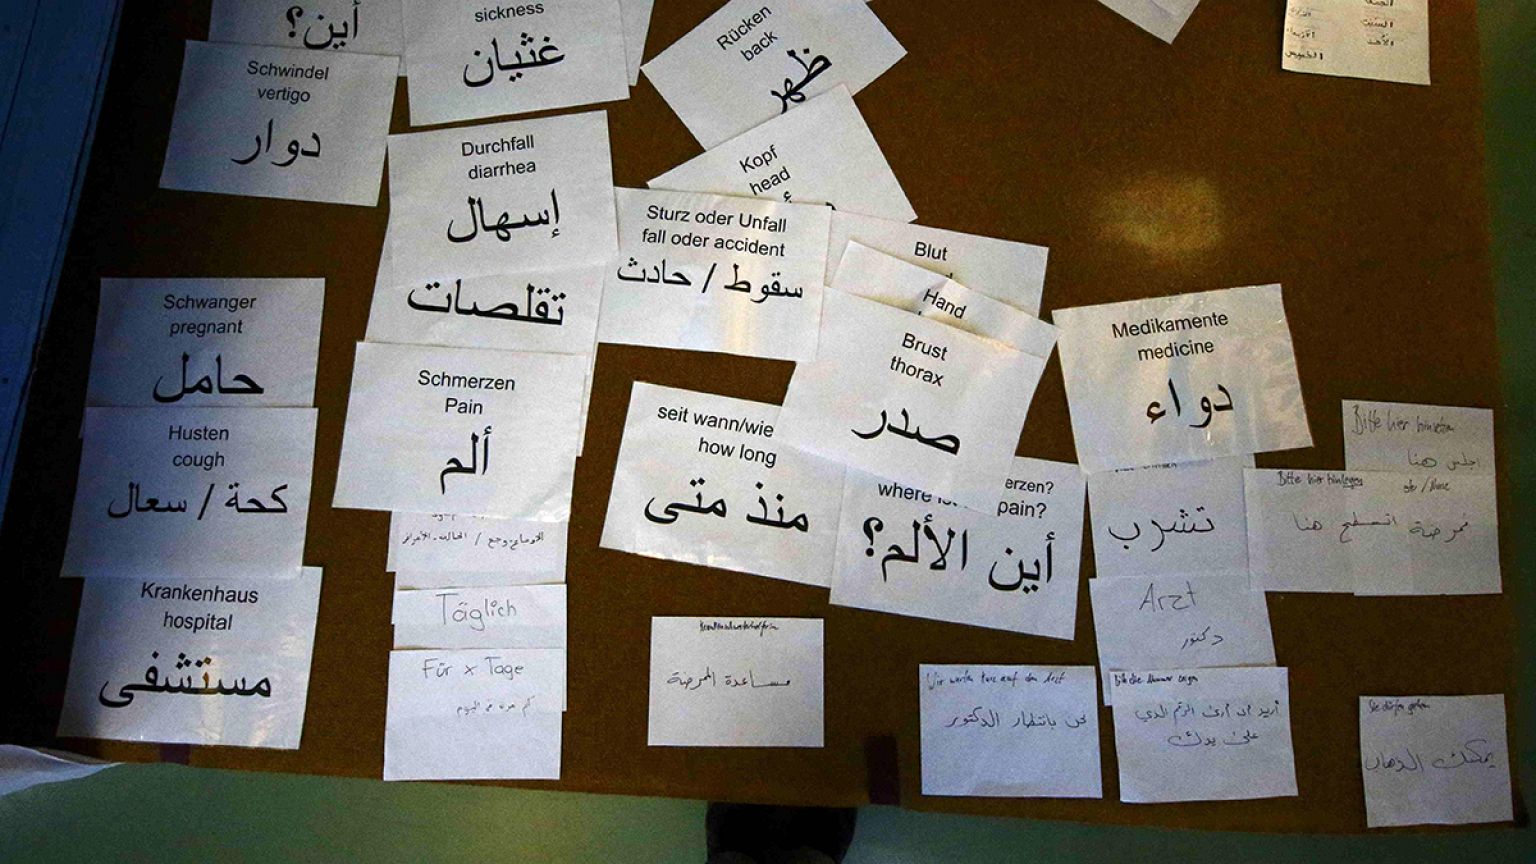 أين؟
sickness
غثيان
Rücken
back
ظهر
السبت
الأحد
الخميس
Schwindel
vertigo
دوار
Durchfall
diarrhea
إسهال
تقلصات
Kopf
head
Sturz oder Unfall
fall oder accident
سقوط / حادث
Blut
Hand
Brust
thorax
صدر
Medikamente
medicine
دواء
Schwanger
pregnant
حامل
Schmerzen
Pain
ألم
seit wann/wie
how long
منذ متى
where
erzen?
pain?
أين الألم؟
Husten
cough
كحة / سعال
Krankenhaus
hospital
مستشفى
Täglich
Für x Tage
مساعدة الممرضة
تشرب
Arzt
دكتور
Wir warten kurz auf den Arzt
نحن بانتظار الدكتور
Bitte die Nummer zeigen
أريد أن أرى الرقم الذي
على يدك
Bitte hier hinsetzen
اجلس هنا
Bitte hier hinlegen
انسطح هنا
ممرضة
Sie dürfen gehen
يمكنك الذهاب